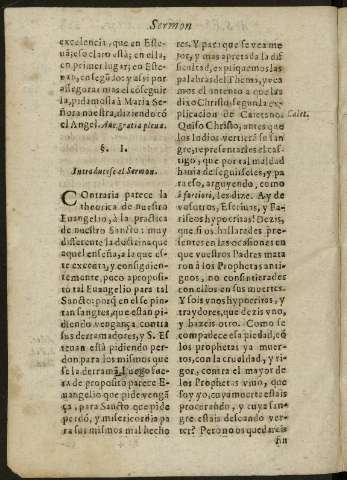 Sermon
excelencia, que en Este-
uã; eso claro està; en ella,
en primer lugar; en Este-
uan, en segũdo: y assi por
assegorar mas el cõseguir
la, pidamosla à Maria Se-
ñora nuestra, diziendo cõ
el Angel. Aue gratia plena.
§. I.
Introducese el Sermon.
COntraria parece la
theorica de nuestro
Euangelio, à la practica
de nuestro Sancto: muy
differente la doctrina que
aquel enseña, a la que es-
te executa, y consiguien-
temente, poco aproposi-
to tal Euangelio para tal
Sancto: porq̃ en el se pin-
tan sangres, que estan pi-
diendo vengança, contra
sus derramadores, y S. Es-
teuan està pidiendo per-
don para los mismos que
se la derramã. Luego fue-
ra de proposito parece E-
uangelio que pide vengã
ça, para Sancto que pide
perdõ, y misericordia pa-
ra sus mismos mal hecho
res. Y para que se vea me-
jor, y mas apretada la di-
ficultad, expliquemos las
palabras del Thema, y vea
mos el intento a que las
dixo Christo segun la ex-
plicacion de Caietano. Caiet.
Quiso Christo, antes que
los Iudios vertiessẽ su san
gre, representarles el cas-
tigo, que por tal maldad
hauia de seguirseles, y pa-
ra eso, arguyendo, como
à fortiori, les dize. Ay de
vosotros, Escriuas, y Fa-
riseos hypocritas! Dezis,
que si os hallarades pre-
sentes en las ocasiones en
que vuestros Padres mata
ron à los Prophetas anti-
guos, no consintierades
con ellos en sus muertes.
Y sois vnos hypocritas, y
traydores, que dezis vno,
y hazeis otro. Como se
compadece essa piedad, cõ
los prophetas ya muer-
tos, con la crueldad, y ri-
gor, contra el mayor de
los Prophetas viuo, que
soy yo, cuya muerte estais
procurando, y cuya san-
gre estais deseando ver-
ter? Pero no os quedareis
sin